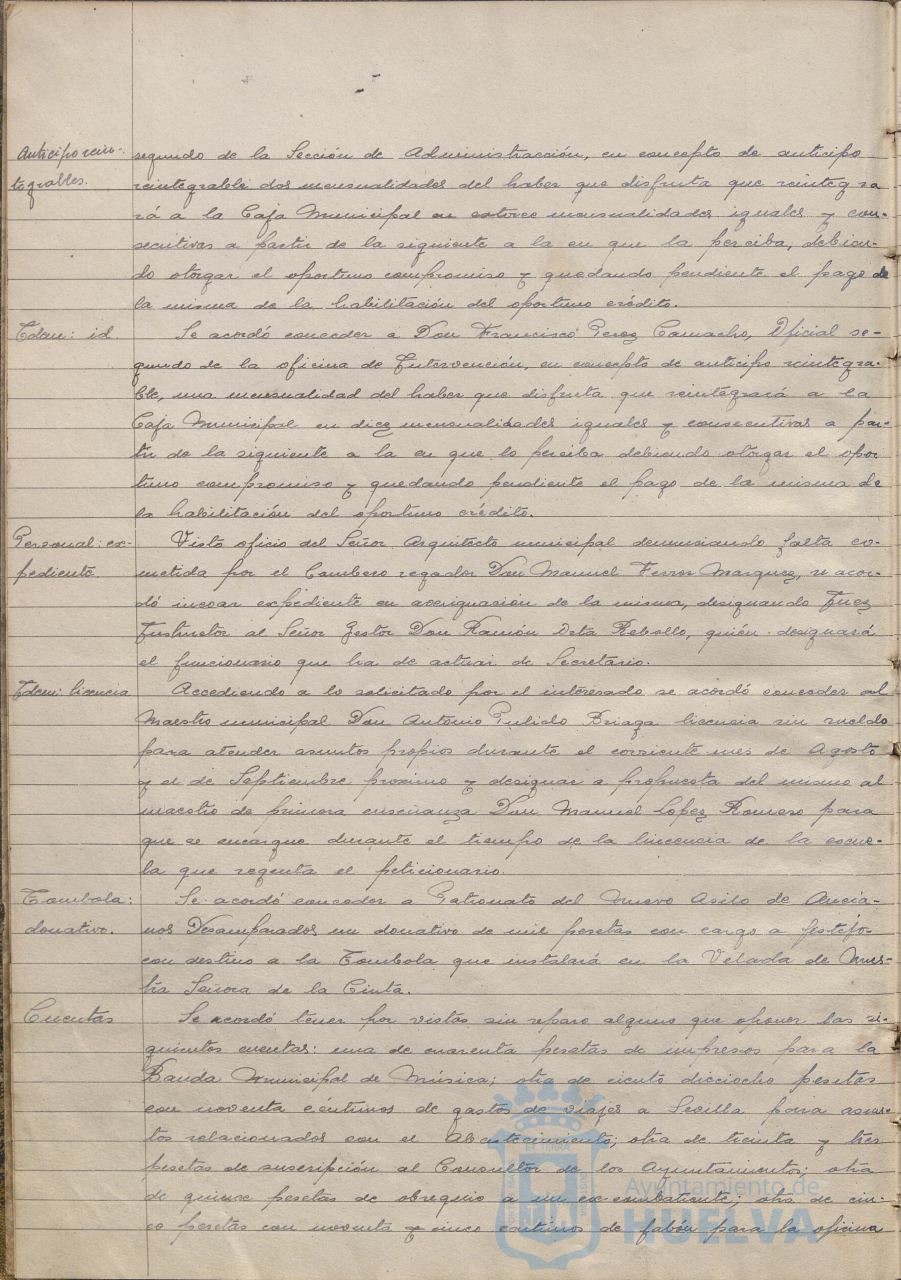 Anticipo rein-
tegrables.
segundo de la Sección de Administracción, en concepto de anticipo
reintegrable dos mensualidades del haber que disfruta que reintegra
rá a la Caja Municipal en catorce mensualidades iguales y con-
secutivas a partir de la siguiente a la en que la perciba, debien-
do otorgar el oportuno compromiso y quedando pendiente el pago de
la misma de la habilitación del oportuno crédito.
Idem: id
Se acordó conceder a Don Francisco Perez Camacho, Oficial se-
gundo de la oficina de Intervención, en concepto de anticipo reintegra-
ble, una mensualidad del haber que disfruta que reintegrará a la
Caja Municipal en diez mensualidades iguales y consecutivas a par-
tir de la siguiente a la en que lo perciba debiendo otorgar el opor
tuno compromiso y quedando pendiente el pago de la misma de
la habilitación del oportuno crédito.
Personal: ex-
pediente.
Visto oficio del Señor Arquitecto municipal denunciando falta co-
metida por el Bombero regador Don Manuel Ferrer Marquez, se acor-
dó incoar expediente en averiguación de la misma, designando Juez
Instructor al Señor Gestor Don Ramón Rebollo, quién designará
el funcionario que ha de actuar de Secretario.
Idem: licencia
Accediendo a lo solicitado por el interesado se acordó conceder al
Maestro municipal Don Antonio Pulido licencia sin sueldo
para atender asuntos propios durante el corriente mes de Agosto
y el de Septiembre proximo y designar a propuesta del mismo al
maestro de primera enseñanza Don Manuel López Romero para
que se encargue durante el tiempo de la lincencia de la escue-
la que regenta el peticionario.
Tombola:
donativo.
Se acordó conceder a Patronato del Nuevo Asilo de Ancia-
nos Desamparados un donativo de mil pesetas con cargo a festejos
con destino a la Tombola que instalará en la Velada de Nues-
tra Señora de la Cinta.
Cuentas
Se acordó tener por vistas sin reparo alguno que oponer las si-
guientes cuentas: una de cuarenta pesetas de impresos para la
Banda Municipal de Música; otra de ciento dieciocho pesetas
con noventa céntimos de gastos de viajes a Sevilla para asun-
tos relacionados con el Abastecimiento; otra de treinta y tres
pesetas de suscripción al Consultor de los Ayuntamientos; otra
de quince pesetas de obsequio a un ex-combatiente; otra de cin-
co pesetas con noventa y cinco centimos de jabón para la oficina
Ayuntamiento de
HUELVA